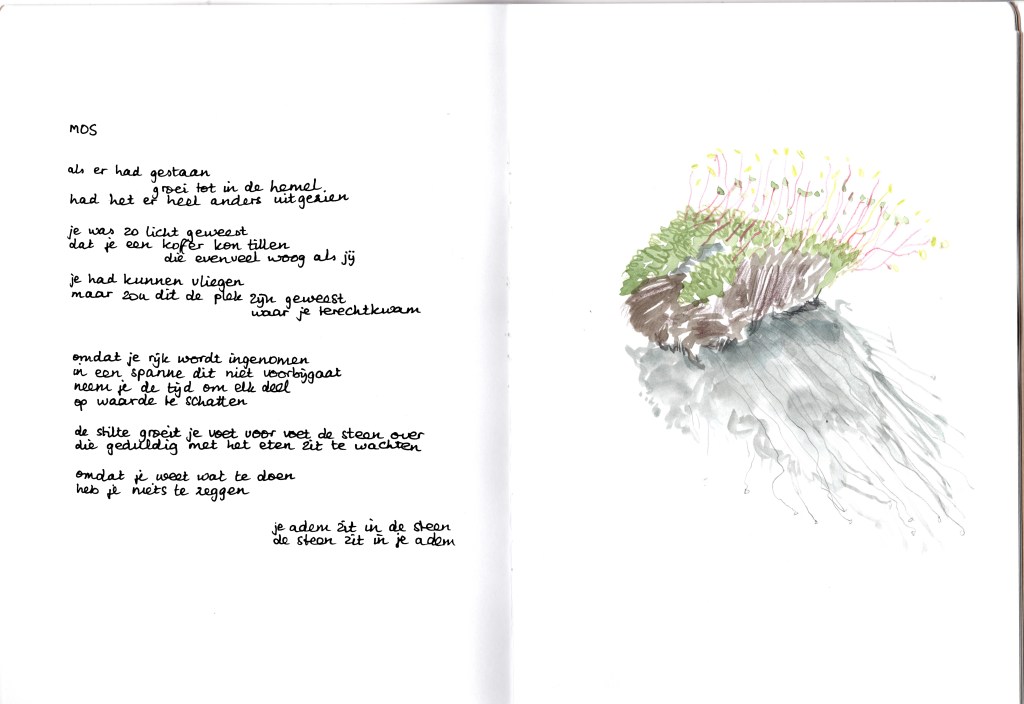 MOS
als er had gestaan
groei tot in de hemel.
had het er heel anders uitgezien
je was zo licht geweest
dat je een koffer kon tillen
die evenveel woog als jij
je had kunnen vliegen
maar zou dit de plek zijn geweest
waar je terechtkwam
omdat je rijk wordt ingenomen
in een spanne dit niet voorbijgaat
neem je de tijd om elk deel
op waarde te schatten
de stilte groeit je voet voor voet de steen over
die geduldig met het eten zit te wachten
omdat je weet wat te doen
heb je niets te zeggen
je adem zit in de steen
de steen zit in je adem